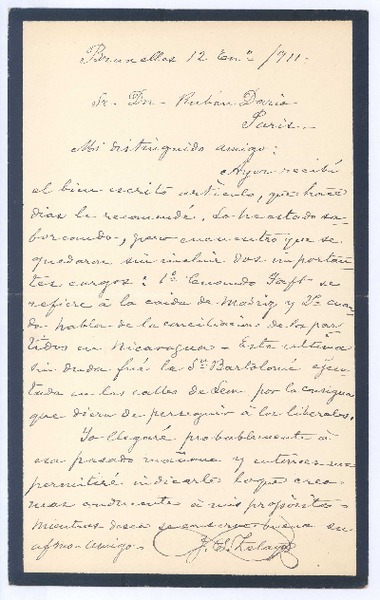 Bruxelles 12 En.º /911.
Sr. Dn. Rubén Darío
Paris.
Mi distinguido amigo:
Ayer recibí
el bien escrito artículo, que hace
días le recomendé. Lo he estado sa-
boreando, pero encuentro que se
quedaron sin incluir dos importan-
tes cargos: 1º Cuando Taft se
refiere á la caída de Madriz y 2º cuan-
do habla de la conciliacion de los par-
tidos en Nicaragua. Esta última
sin duda fué la Sn. Bartolomé ejecu-
tada en las calles de Leon por la consigna
que diera de perseguir á los liberales.
Yo llegaré probablemente á
esa pasado mañana y entónces me
permitiré indicarle lo que creo
mas conducente á mis propósitos.
Mientras desea se conserve bueno su
afmo. amigo.
J. S. Zelaya